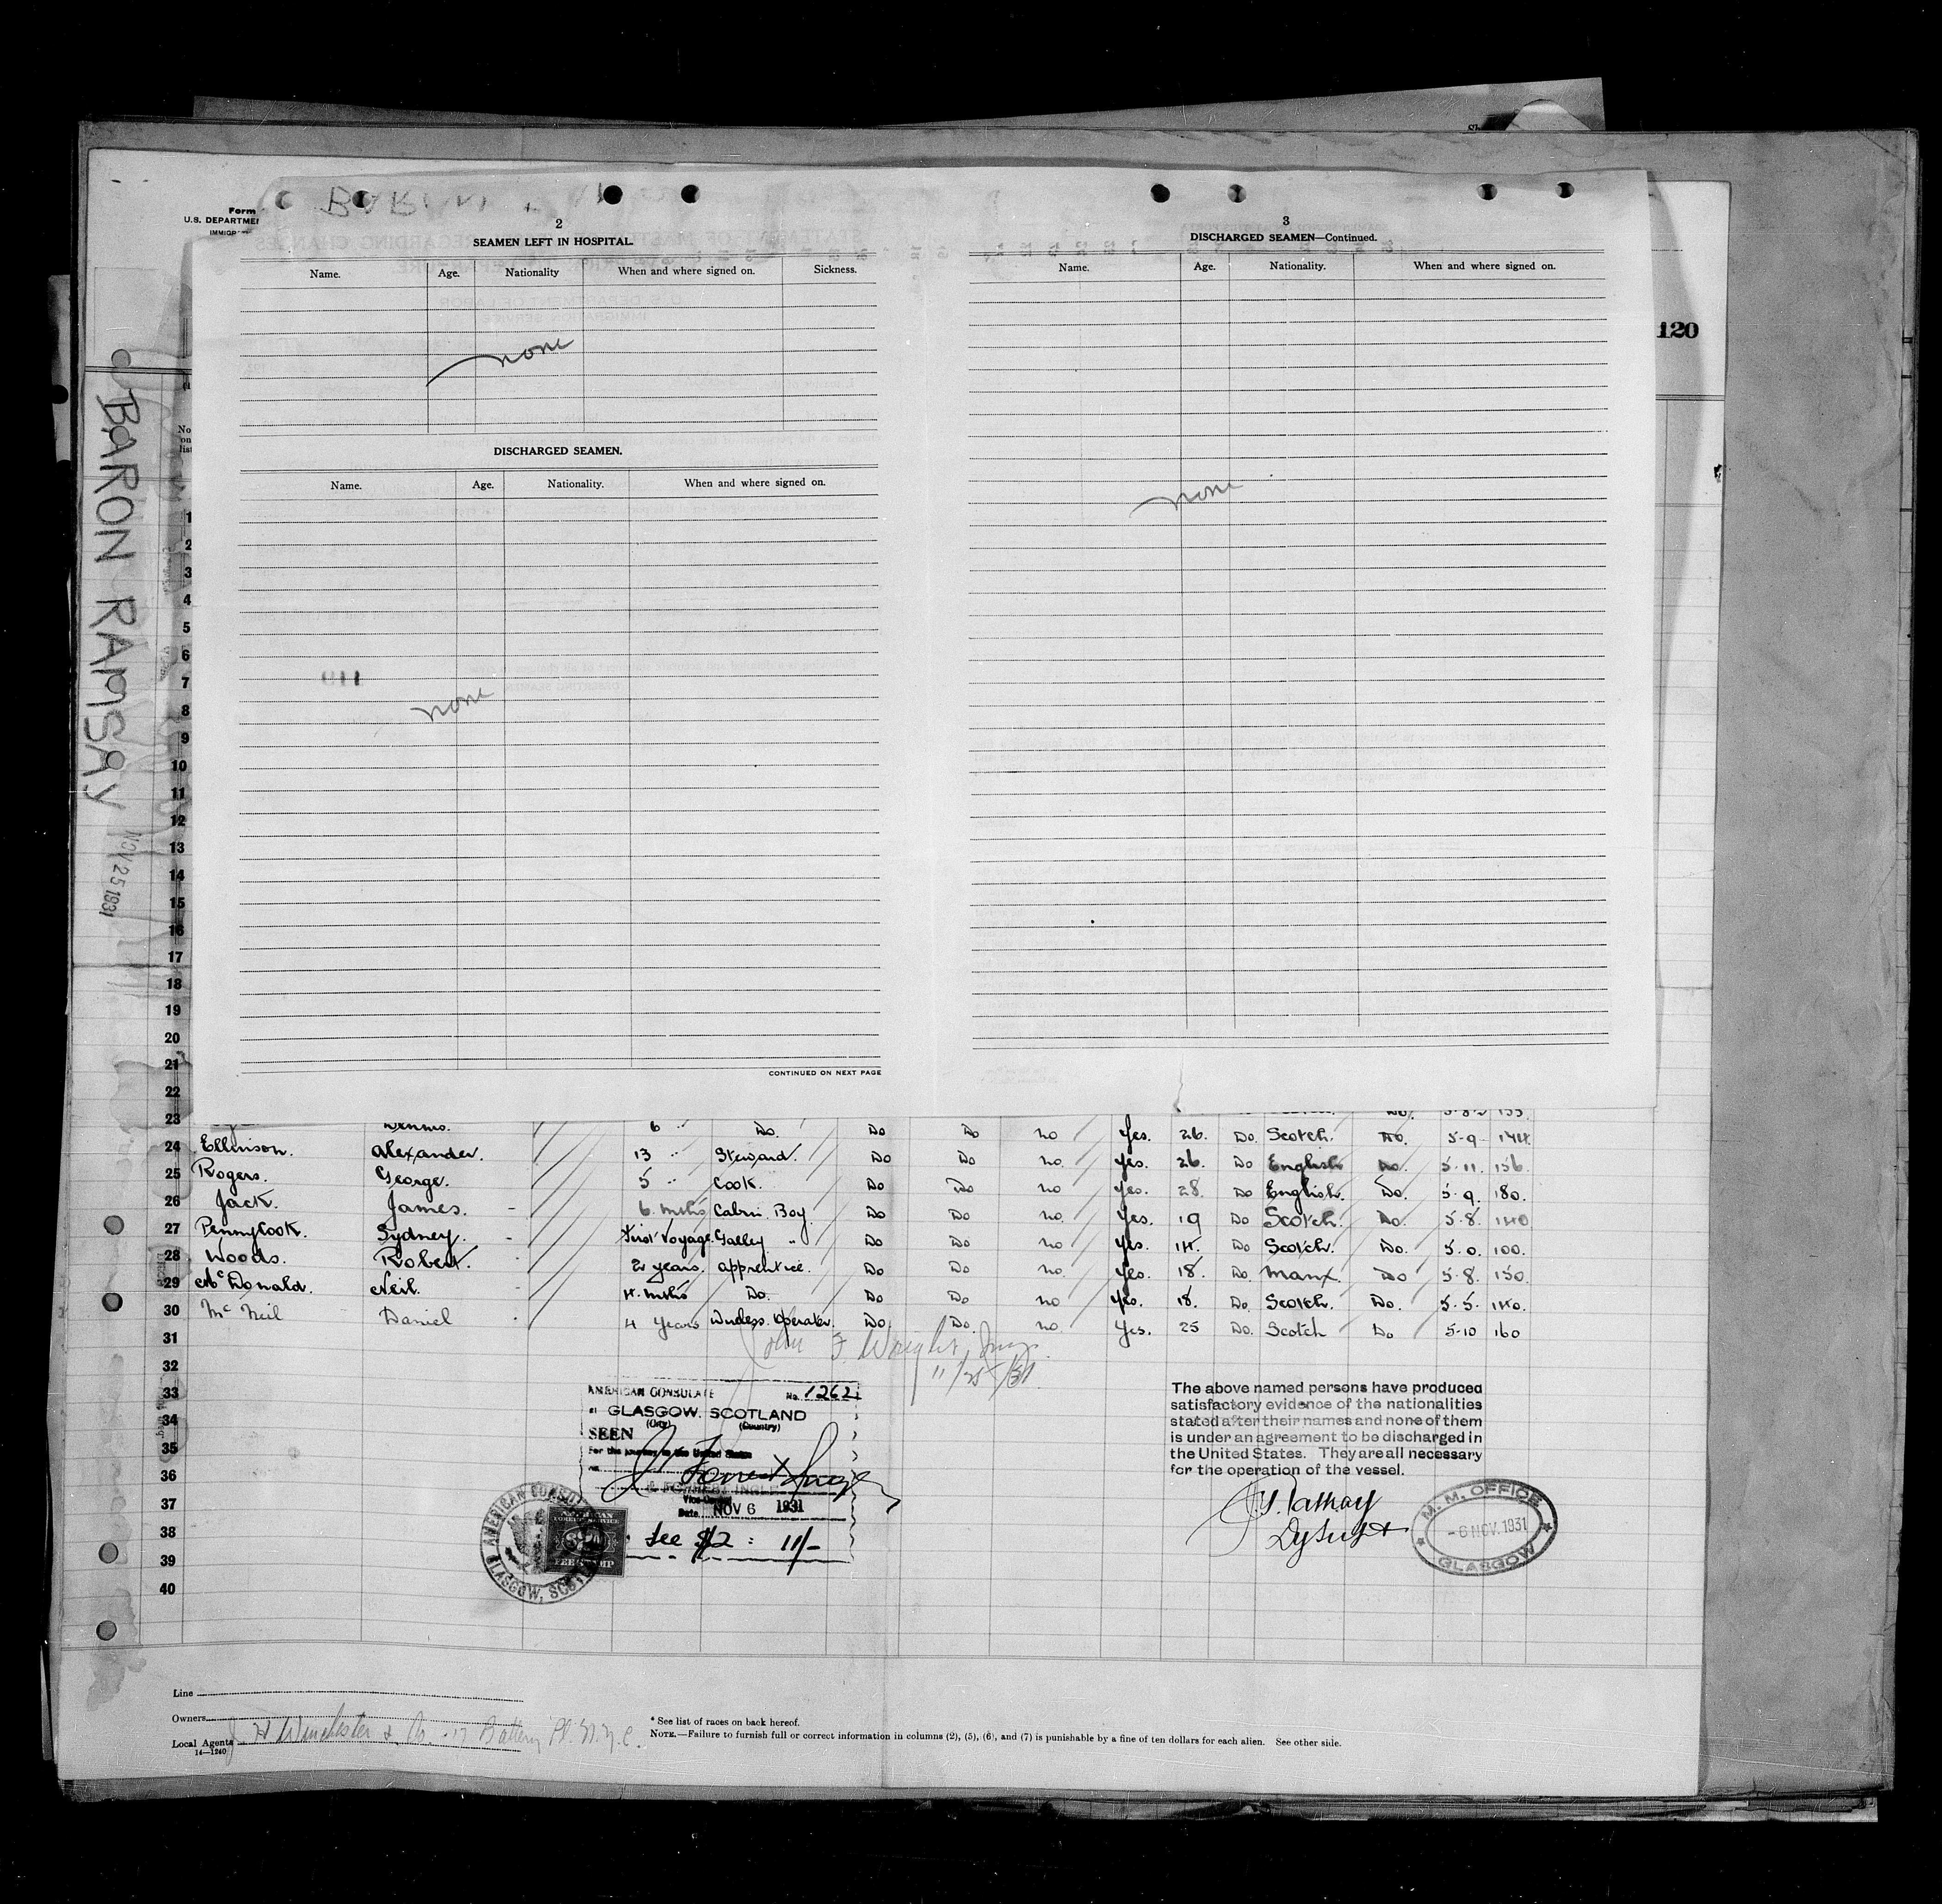 Form
U.S. DEPARTME
IMMIGR
BARON RAMSAY
NOV 25 1931
120
2
SEAMEN LEFT IN HOSPITAL.
Name. Age. Nationality When and where signed on. Sickness.
none
DISCHARGED SEAMEN.
Name. Age. Nationality. When and where signed on.
none
CONTINUED ON NEXT PAGE
3
DISCHARGED SEAMEN—Continued.
Name. Age. Nationality. When and where signed on.
none
No
on
list
1
2
3
4
5
6
7
8
9
10
11
12
13
14
15
16
17
18
19
20
21
22
23 Dennis. 6 " Do. Do Do no Yes. 26. Do Scotch. Do. 5-9 144.
24 Ellinson. Alexander. 13 " Steward. Do Do no. Yes. 26. Do English Do. 5-11. 156.
25 Rogers. George. 5 " Cook. Do Do no Yes. 28. Do English. Do. 5-9. 180.
26 Jack. James. 6 mths Cabin Boy Do Do no. Yes. 19 Do Scotch. Do. 5-8. 140
27 Pennycook. Sydney. First Voyage. Galley " Do Do no Yes. 14. Do Scotch. Do. 5.0. 100.
28 Woods. Robert. 2 years. apprentice. Do Do no. Yes. 18. Do. Manx. Do 5-8. 150.
29 McDonald. Neil. 4. mths Do. Do Do no Yes. 18. Do. Scotch. Do. 5-5. 140.
30 McNeil Daniel 4 Years Wireless Operator. Do Do. no. Yes. 25 Do. Scotch Do 5-10 160
31
32
33
34
35
36
37
38
39
40
John F. Wright, Insp.
11/25/31
AMERICAN CONSULATE No. 1262
at GLASGOW, SCOTLAND
(City) (Country)
SEEN
For the journey to the United States
Vice Consul
Date NOV 6 1931
Fee $2 : 11/-
AMERICAN CONSUL
GLASGOW, SCOT
AMERICAN
FOREIGN SERVICE
$2
FEE STAMP
The above named persons have produced
satisfactory evidence of the nationalities
stated after their names and none of them
is under an agreement to be discharged in
the United States. They are all necessary
for the operation of the vessel.
Dy Supt
M. M. OFFICE
-6 NOV. 1931
GLASGOW
Line
Owners
Local Agents J H Winchester & Co. 17 Battery Pl. N.Y.C.
14—1240
* See list of races on back hereof.
NOTE.—Failure to furnish full or correct information in columns (2), (5), (6), and (7) is punishable by a fine of ten dollars for each alien. See other side.